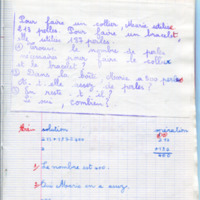 Pour faire un collier Marie utilise
213 perles. Pour faire un bracelet,
elle utilise 187 perles.
1) Trouve le nombre de perles
nécessaire pour faire le collier
et le bracelet ?
2) Dans la boîte Marie a 500 perles
a-t-elle assez de perles ?
3) En reste-t-il ?
si oui, combien ?
solution opération
213+187=400 213
187
400
1) Le nombre est 400.
2) Oui Marie en a assez.